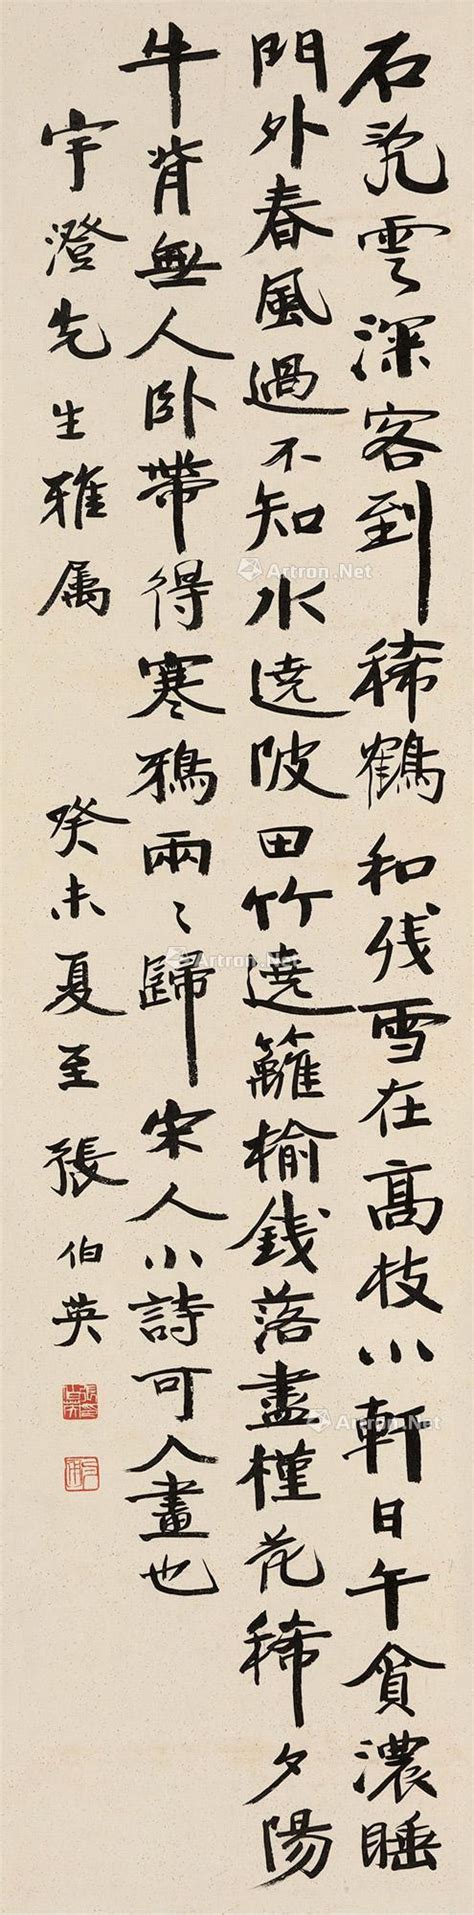 石雲深客到稀鶴和残雪在高枝小軒日午貪濃睡
門外春風過不知水遶陂田竹遶籬榆錢落盡槿花稀夕陽
牛背無人卧帶得寒鴉兩々歸宋人小詩可入畫也
宇澄先生雅属 癸未夏至張伯英
Artron.Net
Artron.Net
Artron.Net